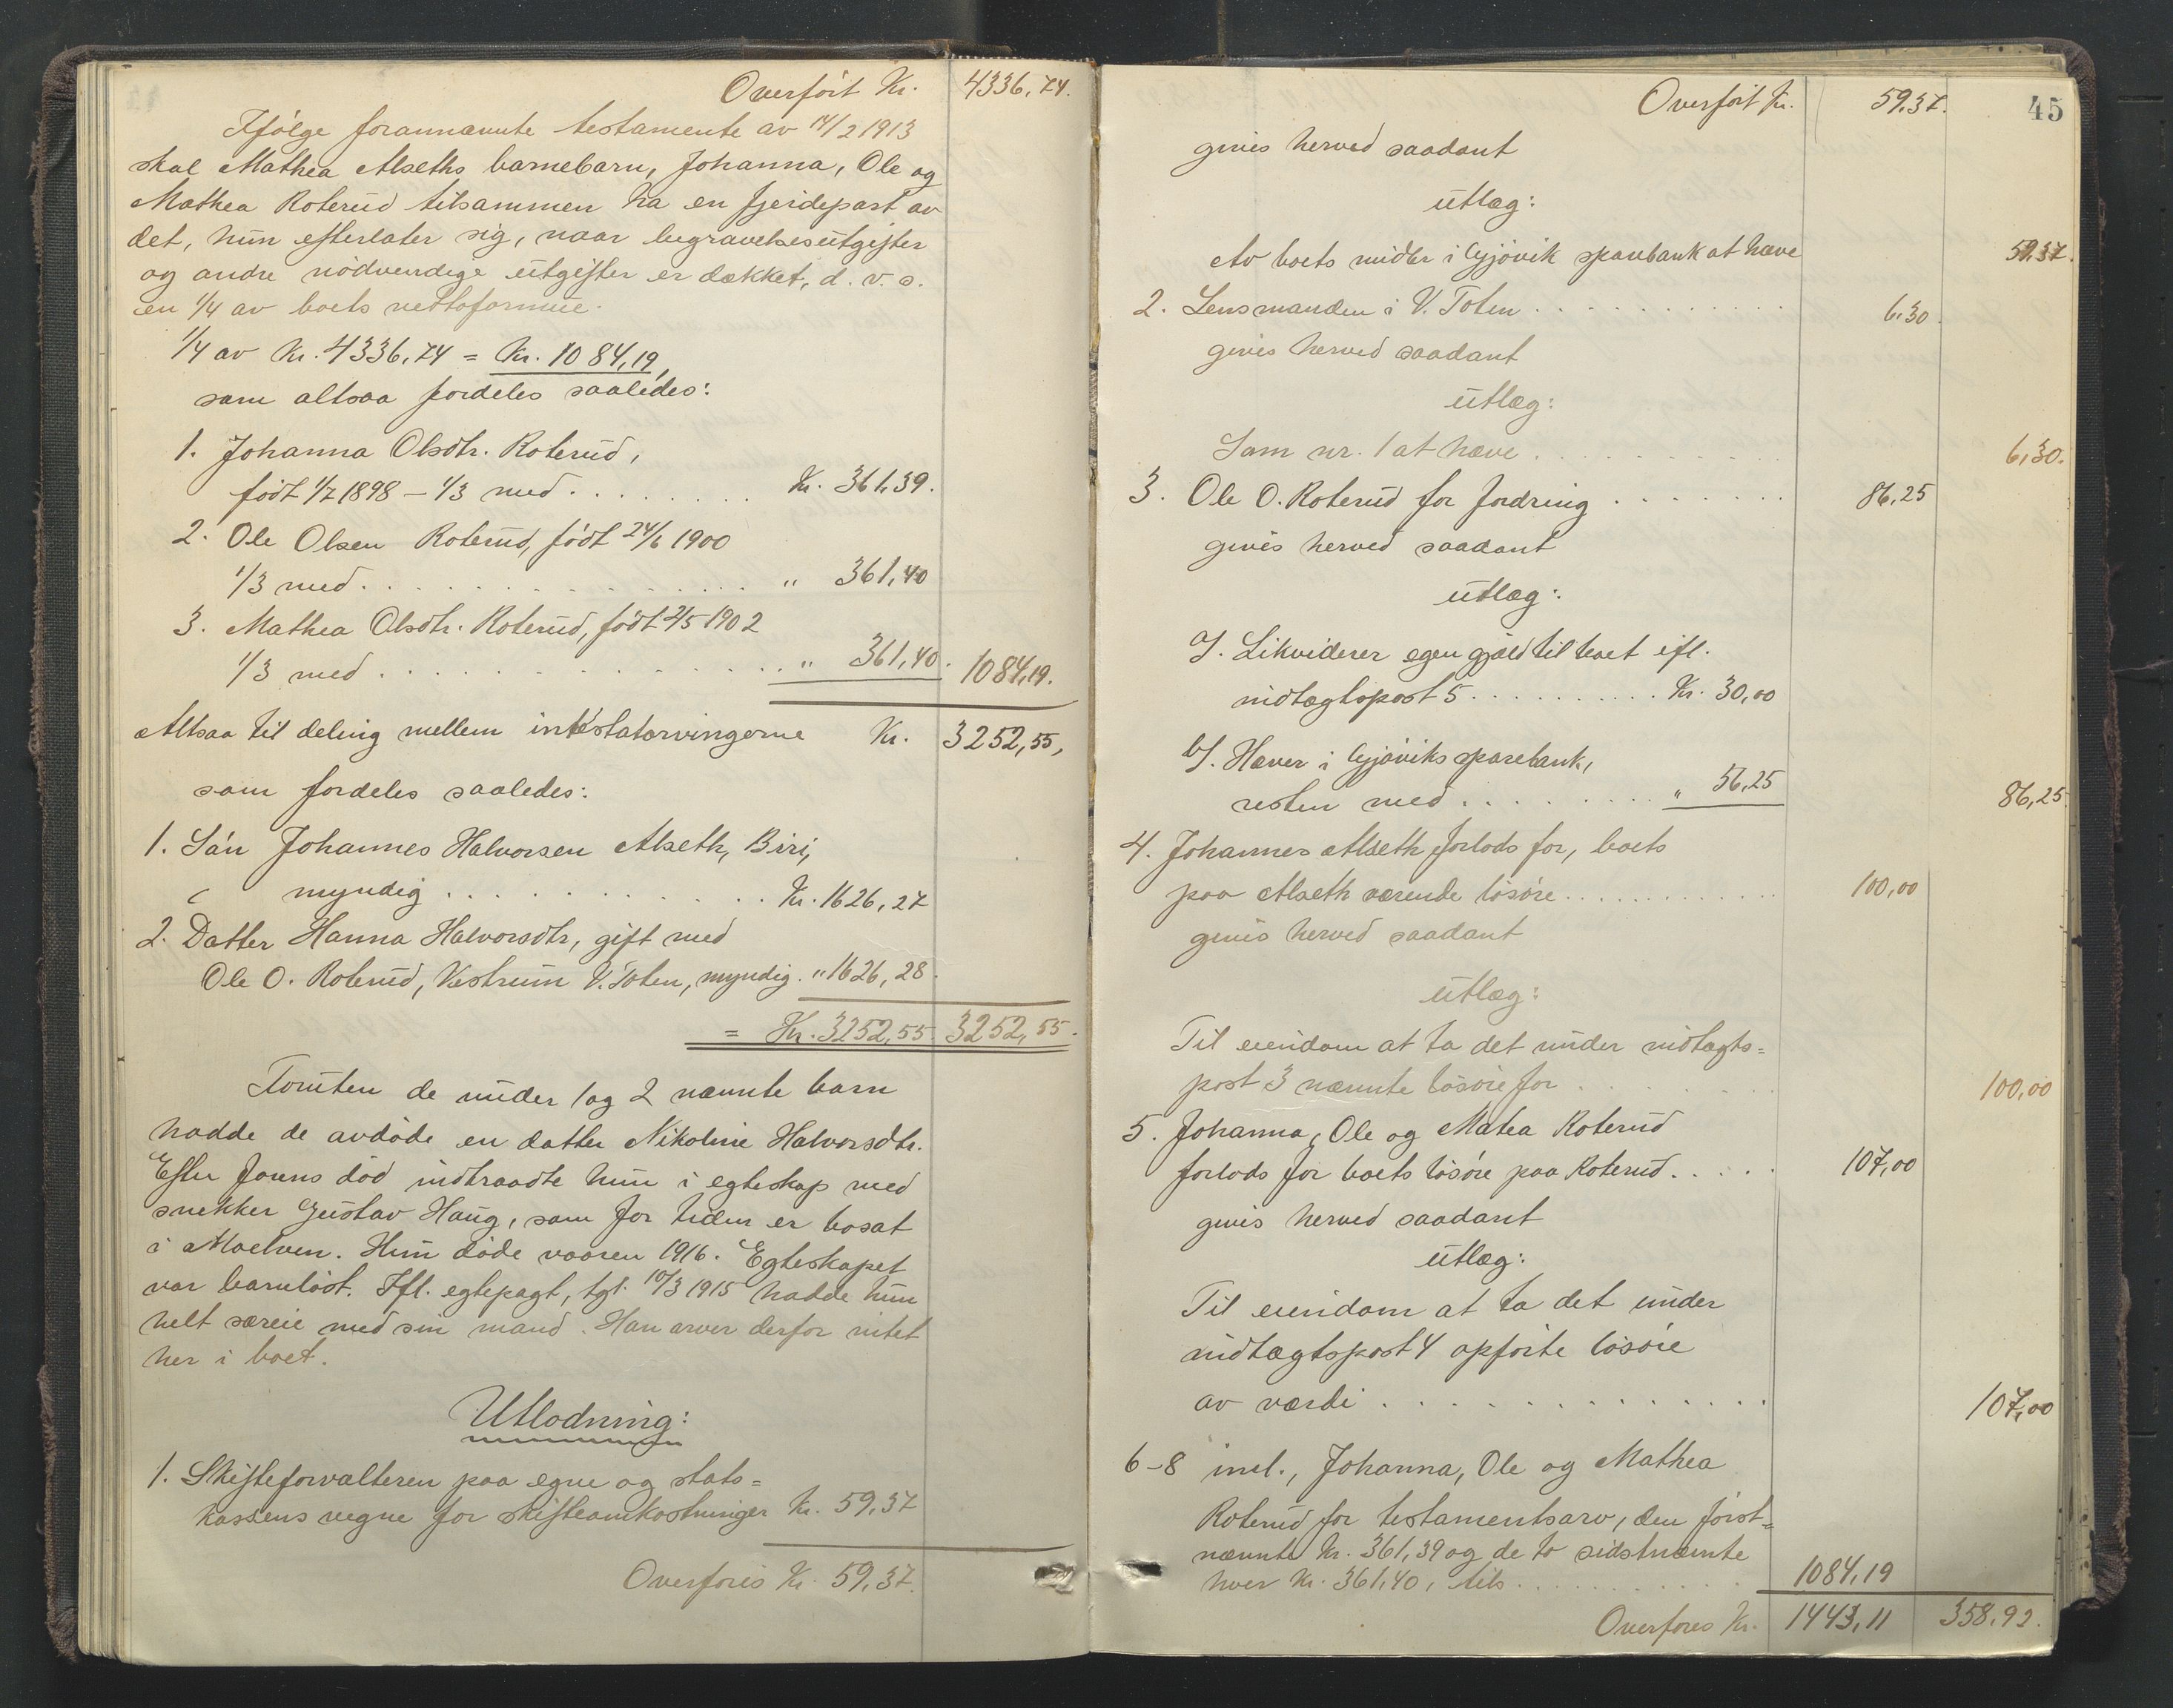 Overført Kr. 4336,74.
Ifølge forannævnte testamente av 14/2 1913
skal Mathea Alseths barnebarn, Johanna, Ole og
Mathea Roterud tilsammen ha en fjerdepart av
det, hun efterlater sig, naar begravelsesutgifter
og andre nødvendige utgifter er dækket, d. v. s.
en 1/4 av boets nettoformue.
1/4 av Kr. 4336,74 = Kr. 1084,19,
som altsaa fordeles saaledes:
1. Johanna Olsdtr. Roterud,
født 1/7 1898 – 1/3 med . . . . . . . Kr. 361,39.
2. Ole Olsen Roterud, født 24/6 1900
1/3 med . . . . . . . . . . . . " 361,40
3. Mathea Olsdtr. Roterud, født 2/5 1902
1/3 med . . . . . . . . . . . . " 361,40. 1084,19.
Altsaa til deling mellem intestatarvingerne Kr. 3252,55,
som fordeles saaledes:
1. Søn Johannes Halvorsen Alseth, Biri,
myndig . . . . . . . . . . Kr. 1626,27
2. Datter Hanna Halvorsdtr, gift med
Ole O. Roterud, Vestrum V. Toten, myndig. " 1626,28.
= Kr. 3252,55 3252,55.
Foruten de under 1 og 2 nævnte barn
hadde de avdøde en datter Nikoline Halvorsdtr.
Efter Jouns død indtraadte hun i egteskap med
snekker Gustav Haug, som for tiden er bosat
i Moelven. Hun døde vaaren 1916. Egteskapet
var barnløst. Ifl. egtepagt, tgl. 10/3 1915 hadde hun
helt særeie med sin mand. Han arver derfor intet
her i boet.
Utlodning:
1. Skifteforvalteren paa egne og stats=
kassens vegne for skifteomkostninger Kr. 59,37
Overføres Kr. 59,37.
Overført Kr. 59,37. 45
givis herved saadant
utlæg:
Av boets midler i Gjøvik sparebank at hæve 59,37.
2. Lensmanden i V. Toten . . . . . . . . . . 6,30.
givis herved saadant
utlæg:
Som nr. 1 at hæve . . . . . . . . . . 6,30.
3. Ole O. Roterud for fordring . . . . . . . 86,25
givis herved saadant
utlæg:
a). Likviderer egen gjæld til boet ifl.
indtægtspost 5 . . . . . . . . . . Kr. 30,00
b). Hæver i Gjøviks sparebank,
resten med . . . . . . . . " 56,25 86,25
4. Johannes Alseth forlods for, boets
paa Alseth værende løsøre . . . . . . . . . . . 100,00
givis herved saadant
utlæg:
Til eiendom at ta det under indtægts=
post 3 nævnte løsøre for . . . . . . . 100,00
5. Johanna, Ole og Matea Roterud
forlods for boets løsøre paa Roterud . . . . . 107,00
givis herved saadant
utlæg:
Til eiendom at ta det under
indtægtspost 4 opførte løsøre
av værdi . . . . . . . . . . . . . 107,00
6–8 incl., Johanna, Ole og Mathea
Roterud for testamentsarv, den først=
nævnte Kr. 361,39 og de to sidstnævnte
hver Kr. 361,40, tils . . . . . . . . . . 1084,19
Overføres Kr. 1443,11 358,92.